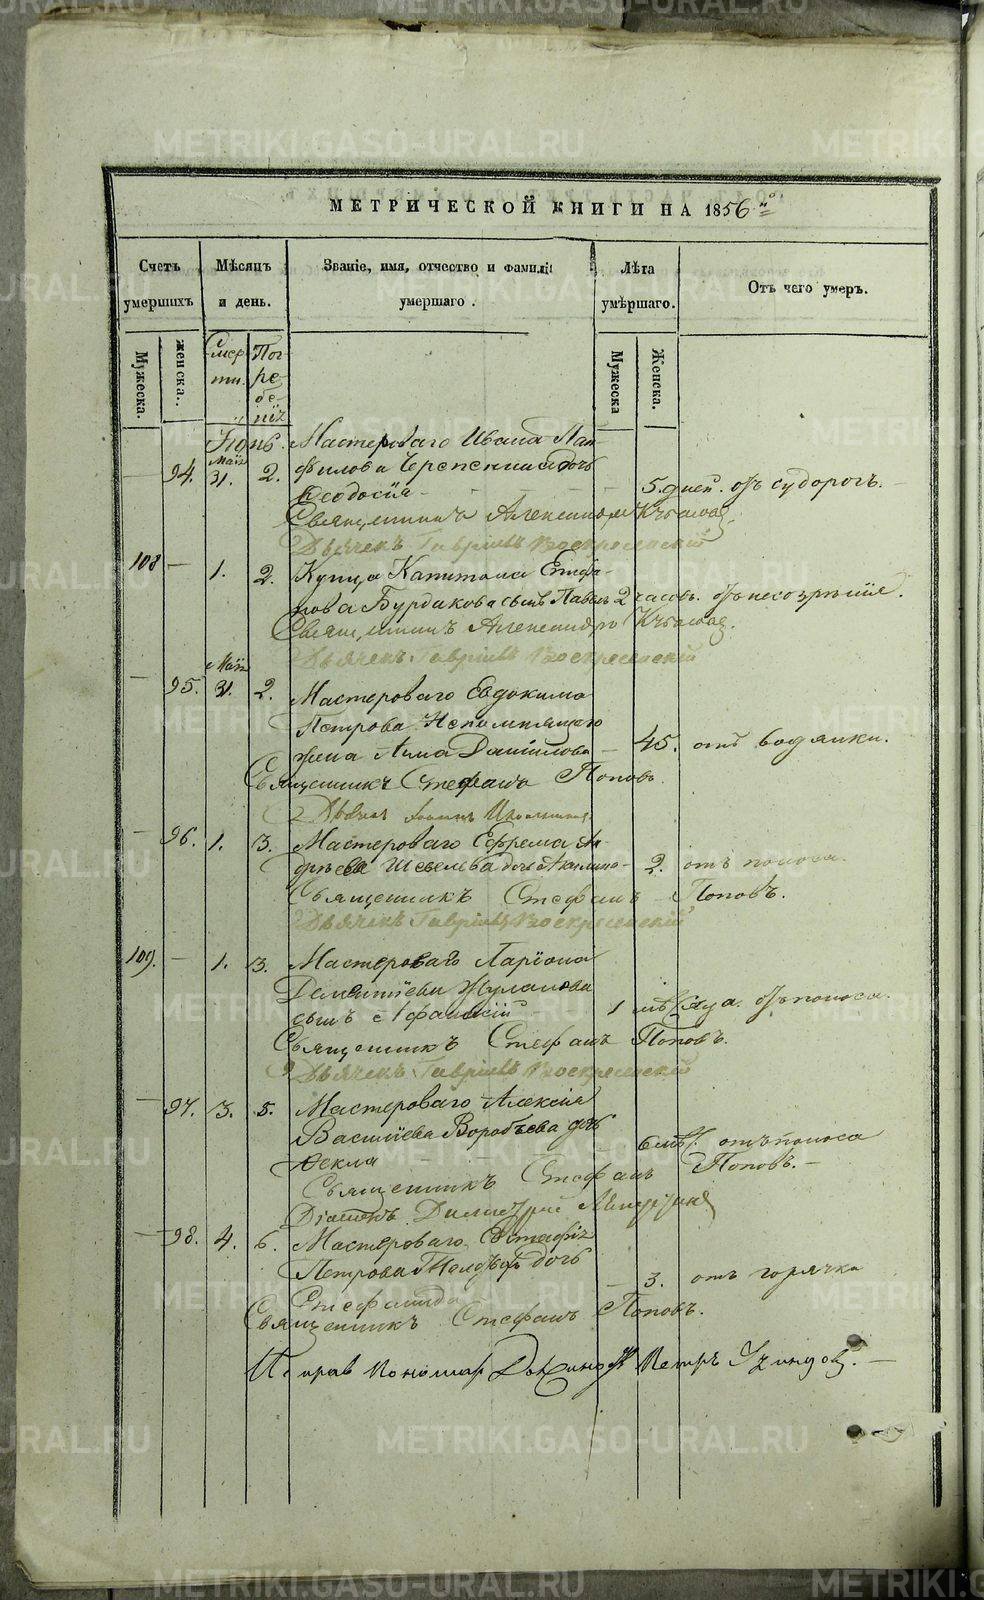 METRIKI.GASO-URAL.RU
МЕТРИЧЕСКОЙ КНИГИ НА 1856 й
Счетъ умершихъ
Мѣсяцъ и день.
Званіе, имя, отчество и фамилія умершаго.
Лѣта умершаго.
Отъ чего умеръ.
Мужеска.
женска.
Смерти.
Погребенія
Мужеска
Женска.
Іюнь. Мастероваго Ивана Пан-
94. Маія 31. 2. филова дочь
Ѳеодосія - 5. дней. отъ судорогъ.
Священникъ Александръ
Дьячекъ Гавріилъ Воскресенскій
108 — 1. 2. Купца Капитона Стефа-
нова Бурдакова сынъ Павелъ 2 часовъ.
Священникъ Александръ
Дьячекъ Гавріилъ Воскресенскій
— 95. Маія 31. 2. Мастероваго Евдокима
Петрова Непомнящаго
жена Анна Данилова — 45. отъ водянки.
Священникъ Стефанъ Поповъ.
— 96. 1. 3. Мастероваго Ефрема Ан-
дреева Шевелева дочь Акилина - 2. отъ поноса.
Священникъ Стефанъ Поповъ.
Дьячекъ Гавріилъ Воскресенскій
109. — 1. 3. Мастероваго Ларіона
Дементіева
сынъ Афанасій — 1 мѣсяца. отъ поноса.
Священникъ Стефанъ Поповъ.
Дьячекъ Гавріилъ Воскресенскій
— 97. 3. 5. Мастероваго Алексія
Василіева Воробьева дочь
Ѳекла 6 мѣс. отъ поноса
Священникъ Стефанъ Поповъ. —
Димитрій
— 98. 4. 6. Мастероваго Евстафія
Петрова дочь
Стефанида — 3. отъ горячки
Священникъ Стефанъ Поповъ.
Пономарь Петръ